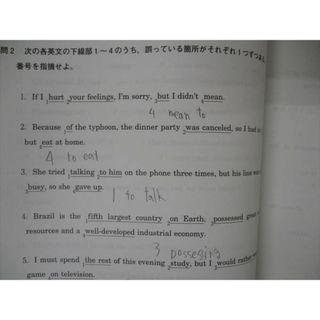 問2 次の各英文の下線部1～4のうち、誤っている箇所がそれぞれ1つずつある。
番号を指摘せよ。
1. If I 1hurt 2your feelings, I'm sorry, 3but I didn't 4mean.
4 mean to
2. Because 1of the typhoon, the dinner party 2was canceled, so I had
but 4eat at home.
4 to eat
3. She tried 1talking 2to him on the phone three times, but his line was
3busy, so she 4gave up.
1 to talk
4. Brazil is the 1fifth largest country 2on Earth, 3possessed great
resources and a 4well-developed industrial economy.
3 possesing
5. I must spend 1the rest of this evening 2study, but I 3would rather
game 4on television.